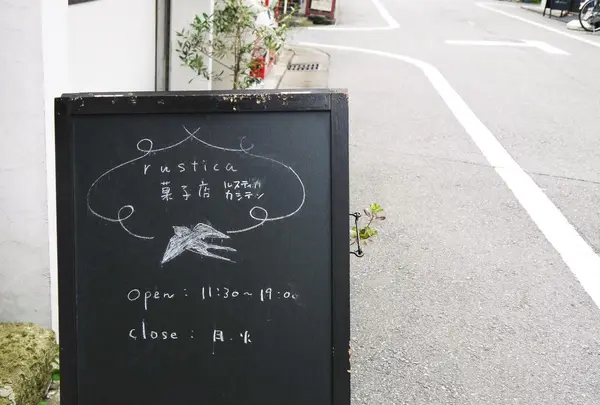 rustica
菓子店 ルスティカ
カシテン
Open : 11:30～19:00
close : 月.火